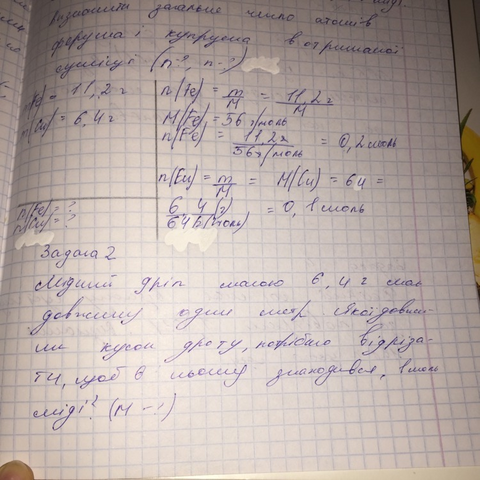 Визначити загальне число атомів
ферума і купрума в отриманій
суміші (n-?, n-?)
m(Fe) = 11,2 г
m(Cu) = 6,4 г
n(Fe) = ?
n(Cu) = ?
n(Fe) = m/M = 11,2 г/M
M(Fe) = 56 г/моль
n(Fe) = 11,2 г/56 г/моль = 0,2 моль
n(Cu) = m/M = M(Cu) = 64 =
6,4 (г)/64 (г/моль) = 0,1 моль
Задача 2
Мідний дріт масою 6,4 г має
довжину один метр. Якої довжи-
ни кусок дроту, потрібно відріза-
ти, щоб в ньому знаходився, 1 моль
міді? (M - ?)